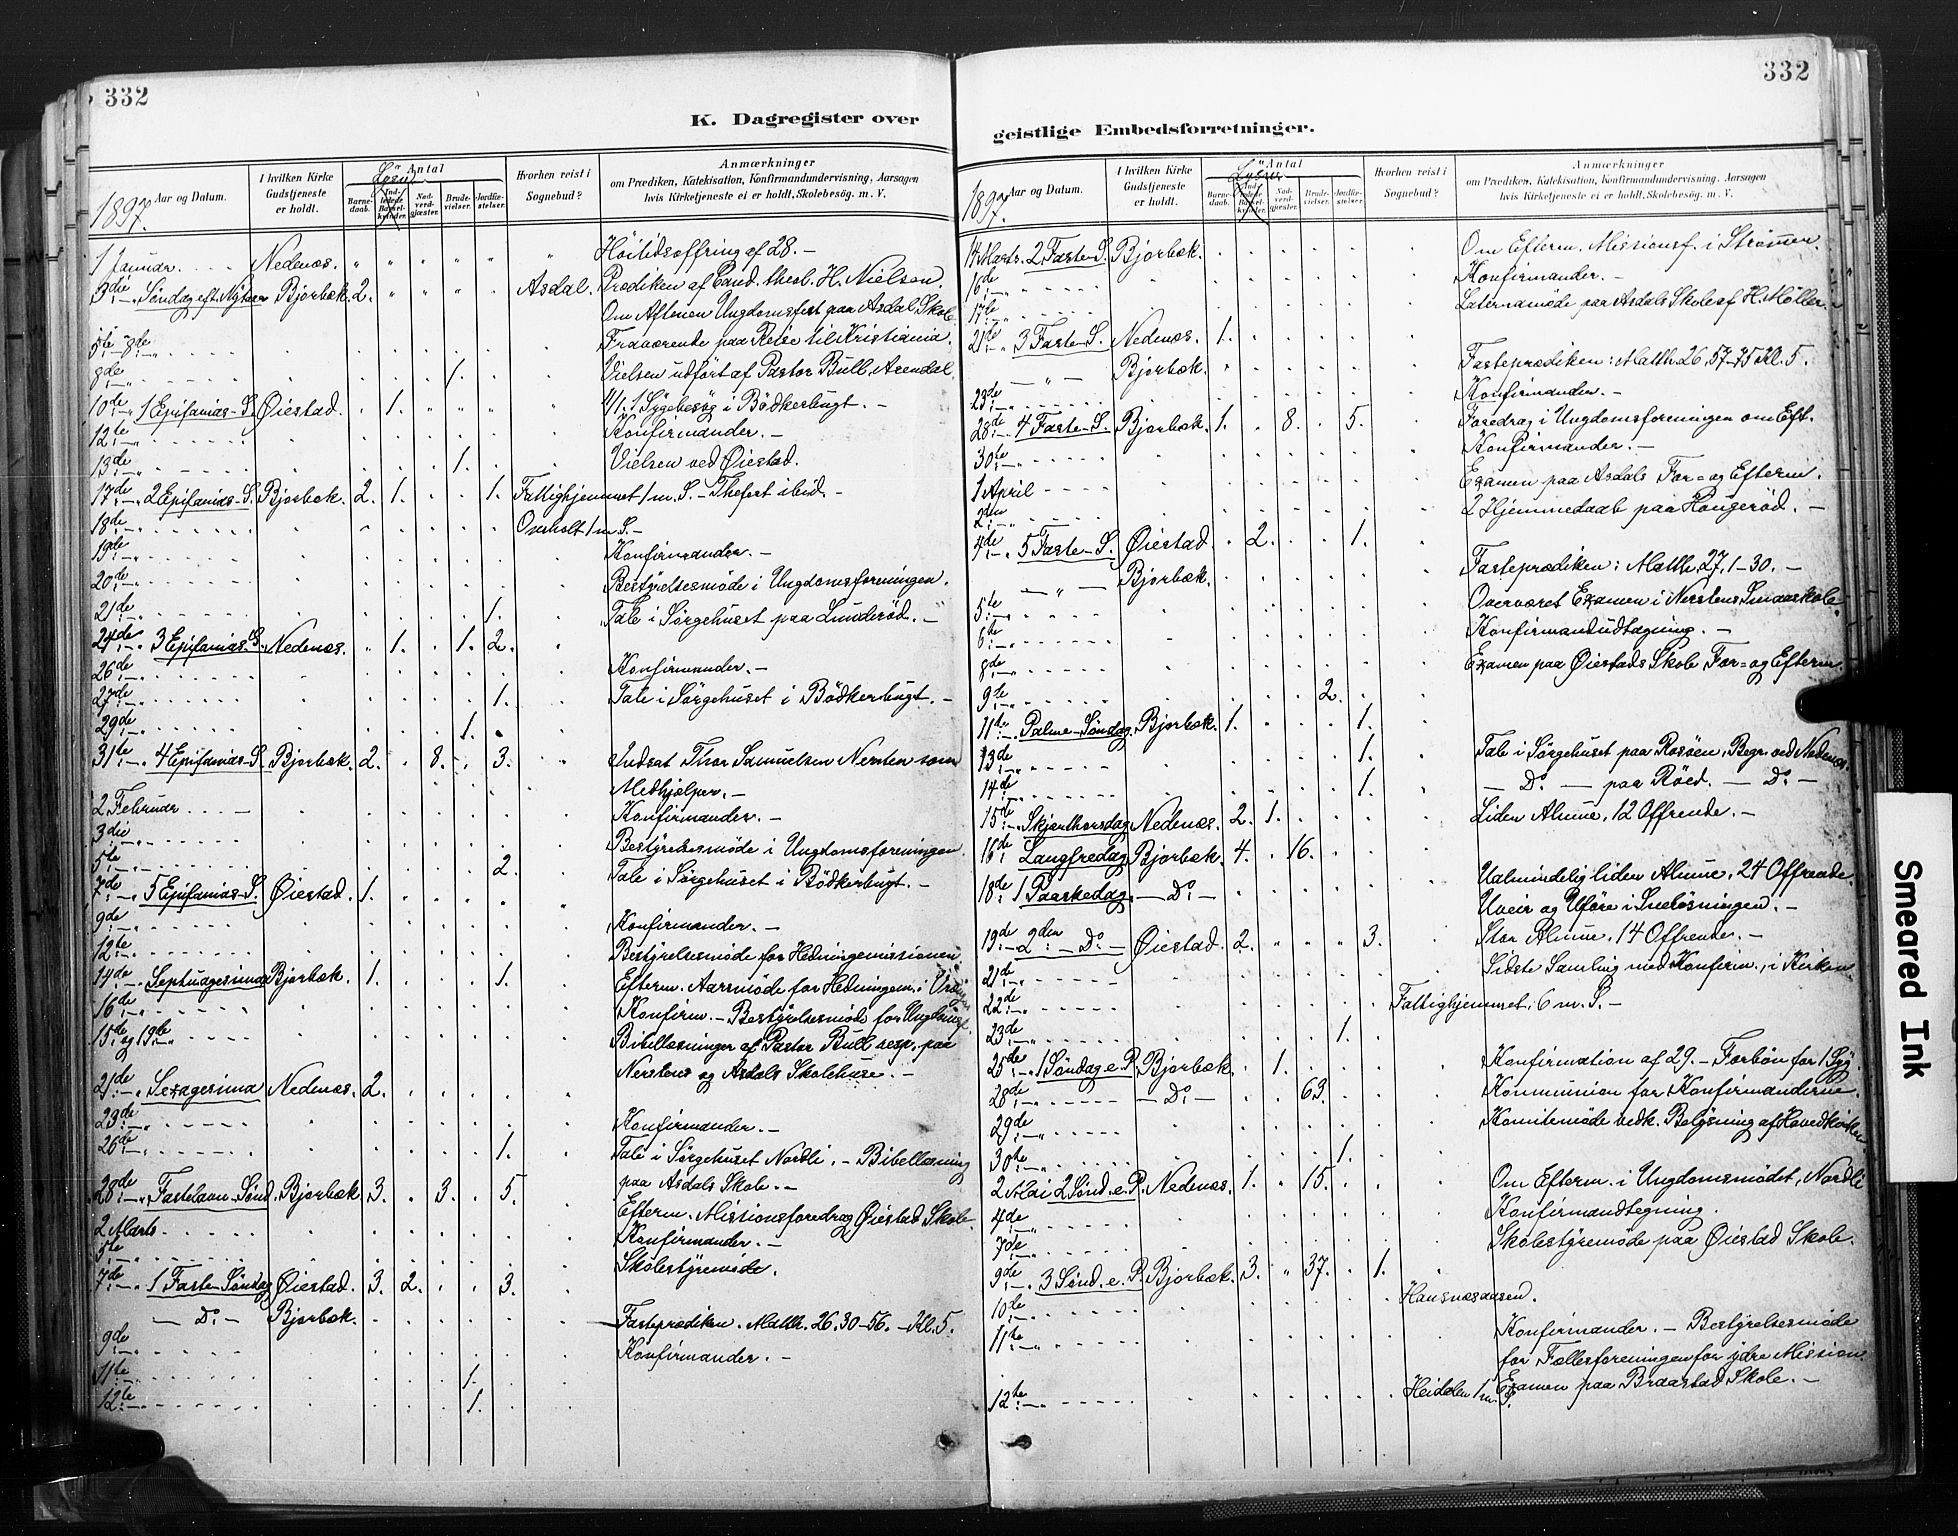 332
K. Dagregister over
Aar og Datum.
I hvilken Kirke Gudstjeneste er holdt.
Antal
Lysn
Barnedaab.
Indledede Barselkvinder.
Nadverdgjæster.
Brudevielser.
Jordfæstelser.
Hvorhen reist i Sognebud?
Anmærkninger
om Prædiken, Katekisation, Konfirmandundervisning, Aarsagen
hvis Kirketjeneste ei er holdt, Skolebesøg. m. V.
1897.
1 Januar. Nedenæs. " " " " " " Höitidsoffring af 28. –
3die –"– Søndag eft. Nytaar Bjorbæk. 2. " " " " Asdal. Prædiken af Cand. theol. H. Nielsen.
Om Aftenen Ungdomsfest paa Asdal Skole.
5te–8de Fraværende paa Reise til Kristiania.
8de 1. Vielsen udført af Pastor Bull, Arendal.
10de –"– 1 Epifanias–S. Øiestad. 1. " " " 11/1. 1 Sygebesøg i Bödkerbugt. –
12te Konfirmander. –
13de 1. Vielsen ved Øiestad.
17de –"– 2 Epifanias–S. Bjorbæk. 2. 1. 1. Fattighjemmet 1 m. S. –
18de Omholt 1 m S. –
19de Konfirmander. –
20de Bestyrelsesmøde i Ungdomsforeningen.
21de 1. Tale i Sørgehuset paa Lunderød. –
24de –"– 3 Epifanias–S. Nedenæs. 1. 1. 2.
26de Konfirmander. –
27de 1. Tale i Sørgehuset i Bödkerbugt. –
29de 1.
31te –"– 4 Epifanias–S. Bjorbæk. 2. 8. 3. Indsat Thor Samuelsen Nersten som
Medhjælper. –
2 Februar Konfirmander. –
3die Bestyrelsesmøde i Ungdomsforeningen.
5te 2. Tale i Sørgehuset i Bödkerbugt. –
7de –"– 5 Epifanias–S. Øiestad. 1.
9de Konfirmander. –
12te Bestyrelsesmöde for Hedningemissionen
14de –"– Septuagesima Bjorbæk. 1. 1. Efterm. Aarsmøde for Hedningem. i
16de Konfirm. – Bestyrelsesmöde for Ungdomsf.
15de og 19te Bibellæsninger af Pastor Bull resp. paa
Nerstens og Asdals Skolehuse. –
21de –"– Sexagesima Nedenæs. 2.
23de Konfirmander. –
26de 1. Tale i Sørgehuset Nordli. – Bibellæsning
paa Asdals Skole. –
28de –"– Fastelavn–Sønd. Bjorbæk 3. 3. 5. Efterm. Missionsforedrag Øiestad Skole.
2 Marts. Konfirmander. –
5te Skolestyremöde.
7de –"– 1 Faste–Søndag Øiestad. 3. 2. 3.
– Do – Bjorbæk. Fasteprædiken. Matth. 26,30–56. – Kl. 5.
9de Konfirmander. –
11te 1.
12te 1.
332
geistlige Embedsforretninger.
Aar og Datum.
I hvilken Kirke Gudstjeneste er holdt.
Antal
Lysn
Barnedaab.
Indledede Barselkvinder.
Nadverdgjæster.
Brudevielser.
Jordfæstelser.
Hvorhen reist i Sognebud?
Anmærkninger
om Prædiken, Katekisation, Konfirmandundervisning. Aarsagen
hvis Kirketjeneste ei er holdt, Skolebesøg. m. V.
1897.
14 Marts. 2 Faste–S. Bjorbæk. Om Efterm. Missionsf. i Strømmen.
16de Konfirmander. –
17de Laternamöde paa Asdals Skole af H. Møller.
21de –"– 3 Faste–S. Nedenæs. 1.
– " – Bjorbæk. Fasteprædiken: Matth. 26, 57–75 Kl. 5.
23de Konfirmander. –
28de –"– 4 Faste–S. Bjorbæk. 1. 8. 5. Foredrag i Ungdomsforeningen om Eft.
30te Konfirmander. –
1 April Examen paa Asdals For= og Efterm.
2den 2 Hjemmedaab paa Haugerød. –
4de –"– 5 Faste–S. Øiestad. 2. 1.
– " – Bjorbæk. Fasteprædiken: Matth. 27, 1–30. –
5te Overværet Examen i Nerstens Smaaskole.
6te Konfirmandudtagning. –
8de Examen paa Øiestads Skole For= og Efterm.
9te 2.
11te –"– Palme–Søndag. Bjorbæk 1. 1.
13de 1. Tale i Sørgehuset paa Rosøen. Begr. ved Nedenæs.
14de 1. – Do – paa Røed. – Do –
15de –"– Skjærthorsdag Nedenæs. 2. 1. Liden Almue. 12 Offrende. –
16de Langfredag Bjorbæk. 4. 16.
18de 1 Paaskedag. – Do – Ualmindelig liden Almue. 24 Offrende.
Uveir og Uføre i Sneløsningen. –
19de –"– 2den – Do – Øiestad. 2. " " " 3. Stor Almue. 14 Offrende. –
21de Sidste Samling med Konfirm. i Kirken.
22de Fattighjemmet. 6 m. S. –
23de 1.
25de –"– 1 Søndag e. P. Bjorbæk. 1. Konfirmation af 29. – Forbön for 1 Syg.
28de – Do – 63. Kommunion for Konfirmanderne.
29de Komitemöde vedk. Belysning af Hovedkirken.
30te 1.
2 Mai 2 Sønd. e. P. Nedenæs. 1. 15. Om Efterm. i Ungdomsmödet, Nordli
4de Konfirmandtegning.
7de Skolestyremöde paa Øiestad Skole.
9de –"– 3 Sønd. e. P. Bjorbæk. 3. " 37. 1.
10de Hansnæsaasen.
11te Konfirmander. – Bestyrelsesmöde
for Fællesforeningen for ydre Mission.
12te Heidalen 1 m S. Examen paa Braastad Skole. –
Smeared Ink